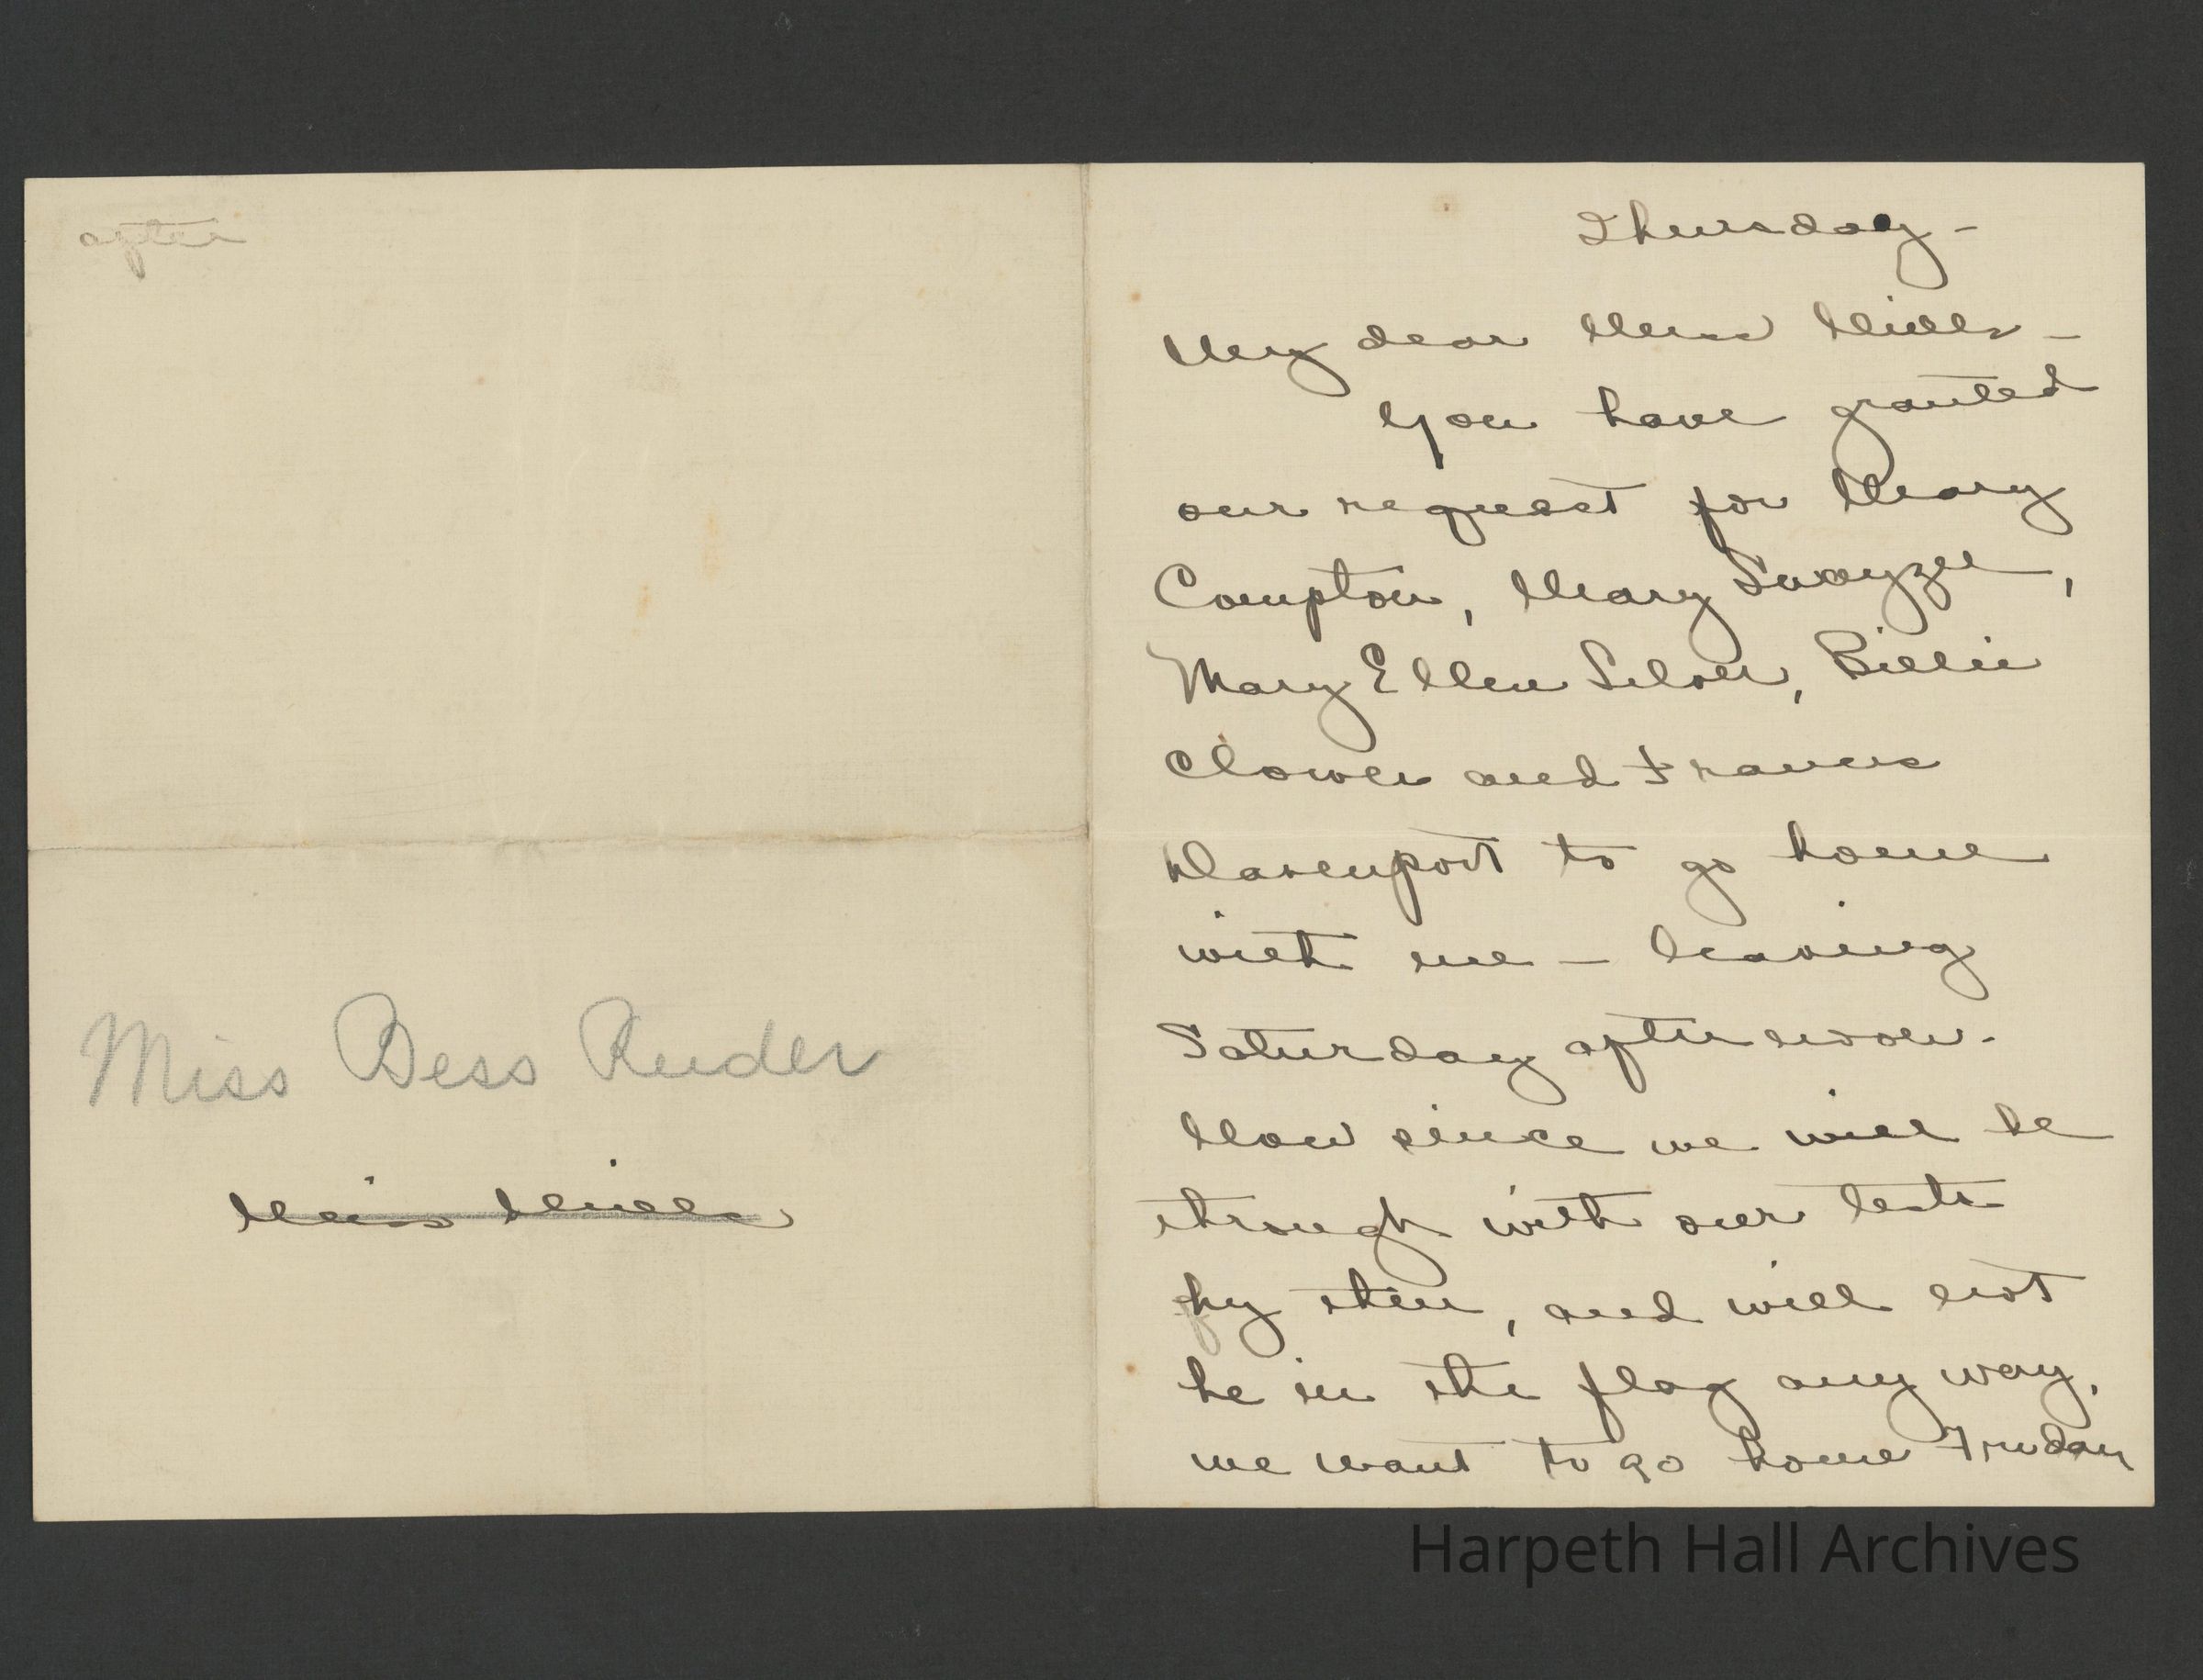 after
Miss Bess Ruder
Miss Mills
Thursday -
My dear Miss Mills -
You have granted
our request for Mary
Compton, Mary Swayzee,
Mary Ellen Silver, Billie
Clower and Francis
Davenport to go home
with me - leaving
Saturday afternoon.
Now since we will be
through with our tests
by then, and will not
be in the flag any way,
we want to go home Friday
Harpeth Hall Archives